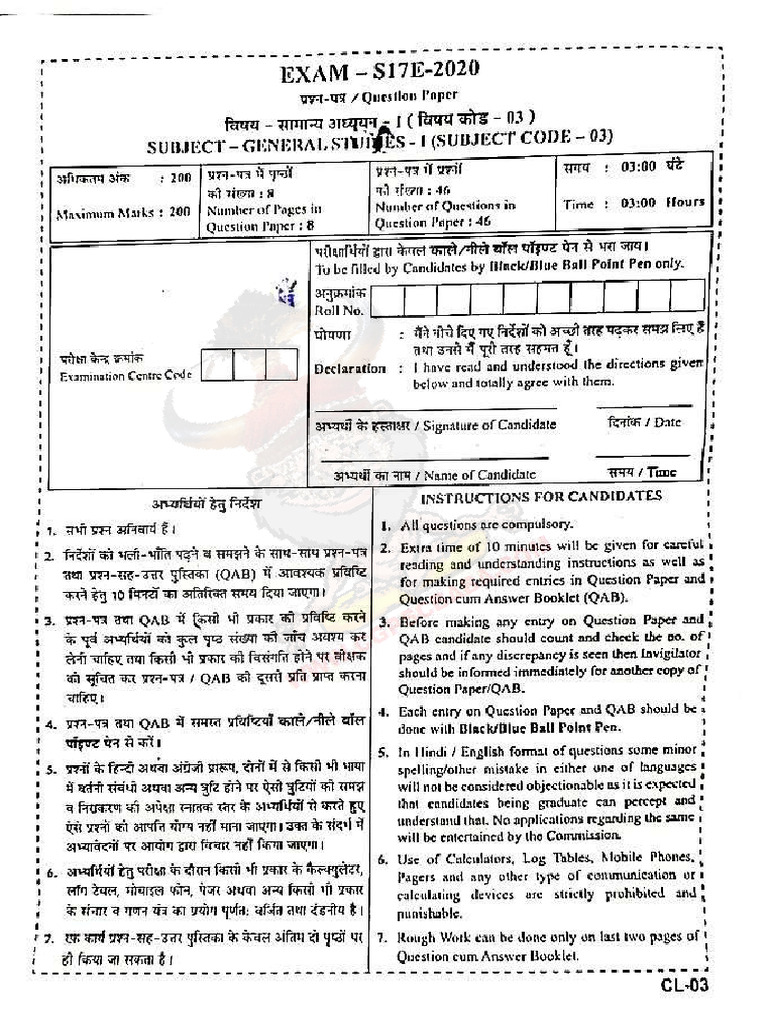 EXAM – S17E-2020
प्रश्न-पत्र / Question Paper
विषय – सामान्य अध्ययन – I ( विषय कोड – 03 )
SUBJECT – GENERAL STUDIES - I (SUBJECT CODE – 03)
अधिकतम अंक : 200
Maximum Marks : 200
प्रश्न-पत्र में पृष्ठों
की संख्या : 8
Number of Pages in
Question Paper : 8
प्रश्न-पत्र में प्रश्नों
की संख्या : 46
Number of Questions in
Question Paper : 46
समय : 03:00 घंटे
Time : 03:00 Hours
परीक्षा केन्द्र क्रमांक
Examination Centre Code
परीक्षार्थियों द्वारा केवल काले/नीले बॉल पॉइण्ट पेन से भरा जाय।
To be filled by Candidates by Black/Blue Ball Point Pen only.
अनुक्रमांक
Roll No.
घोषणा : मैंने नीचे दिए गए निर्देशों को अच्छी तरह पढ़कर समझ लिए हैं
तथा उनसे मैं पूरी तरह सहमत हूँ।
Declaration : I have read and understood the directions given
below and totally agree with them.
अभ्यर्थी के हस्ताक्षर / Signature of Candidate
दिनांक / Date
अभ्यर्थी का नाम / Name of Candidate
समय / Time
अभ्यर्थियों हेतु निर्देश
1. सभी प्रश्न अनिवार्य हैं।
2. निर्देशों को भली-भाँति पढ़ने व समझने के साथ-साथ प्रश्न-पत्र
तथा प्रश्न-सह-उत्तर पुस्तिका (QAB) में आवश्यक प्रविष्टि
करने हेतु 10 मिनटों का अतिरिक्त समय दिया जाएगा।
3. प्रश्न-पत्र तथा QAB में किसी भी प्रकार की प्रविष्टि करने
के पूर्व अभ्यर्थियों को कुल पृष्ठ संख्या की जाँच अवश्य कर
लेनी चाहिए तथा किसी भी प्रकार की विसंगति होने पर वीक्षक
को सूचित कर प्रश्न-पत्र / QAB की दूसरी प्रति प्राप्त करना
चाहिए।
4. प्रश्न-पत्र तथा QAB में समस्त प्रविष्टियाँ काले/नीले बॉल
पॉइण्ट पेन से करें।
5. प्रश्नों के हिन्दी अथवा अंग्रेजी प्रारूप, दोनों में से किसी भी भाषा
में वर्तनी संबंधी अथवा अन्य त्रुटि होने पर ऐसी त्रुटियों की समझ
व निराकरण की अपेक्षा स्नातक स्तर के अभ्यर्थियों से करते हुए
ऐसे प्रश्नों को आपत्ति योग्य नहीं माना जाएगा। उक्त के संदर्भ में
अभ्यावेदनों पर आयोग द्वारा विचार नहीं किया जाएगा।
6. अभ्यर्थियों हेतु परीक्षा के दौरान किसी भी प्रकार के कैल्क्युलेटर,
लॉग टेबल, मोबाइल फोन, पेजर अथवा अन्य किसी भी प्रकार
के संचार व गणन यंत्र का प्रयोग पूर्णतः वर्जित तथा दंडनीय है।
7. रफ कार्य प्रश्न-सह-उत्तर पुस्तिका के केवल अंतिम दो पृष्ठों पर
ही किया जा सकता है।
INSTRUCTIONS FOR CANDIDATES
1. All questions are compulsory.
2. Extra time of 10 minutes will be given for careful
reading and understanding instructions as well as
for making required entries in Question Paper and
Question cum Answer Booklet (QAB).
3. Before making any entry on Question Paper and
QAB candidate should count and check the no. of
pages and if any discrepancy is seen then Invigilator
should be informed immediately for another copy of
Question Paper/QAB.
4. Each entry on Question Paper and QAB should be
done with Black/Blue Ball Point Pen.
5. In Hindi / English format of questions some minor
spelling/other mistake in either one of languages
will not be considered objectionable as it is expected
that candidates being graduate can percept and
understand that. No applications regarding the same
will be entertained by the Commission.
6. Use of Calculators, Log Tables, Mobile Phones,
Pagers and any other type of communication or
calculating devices are strictly prohibited and
punishable.
7. Rough Work can be done only on last two pages of
Question cum Answer Booklet.
CL-03